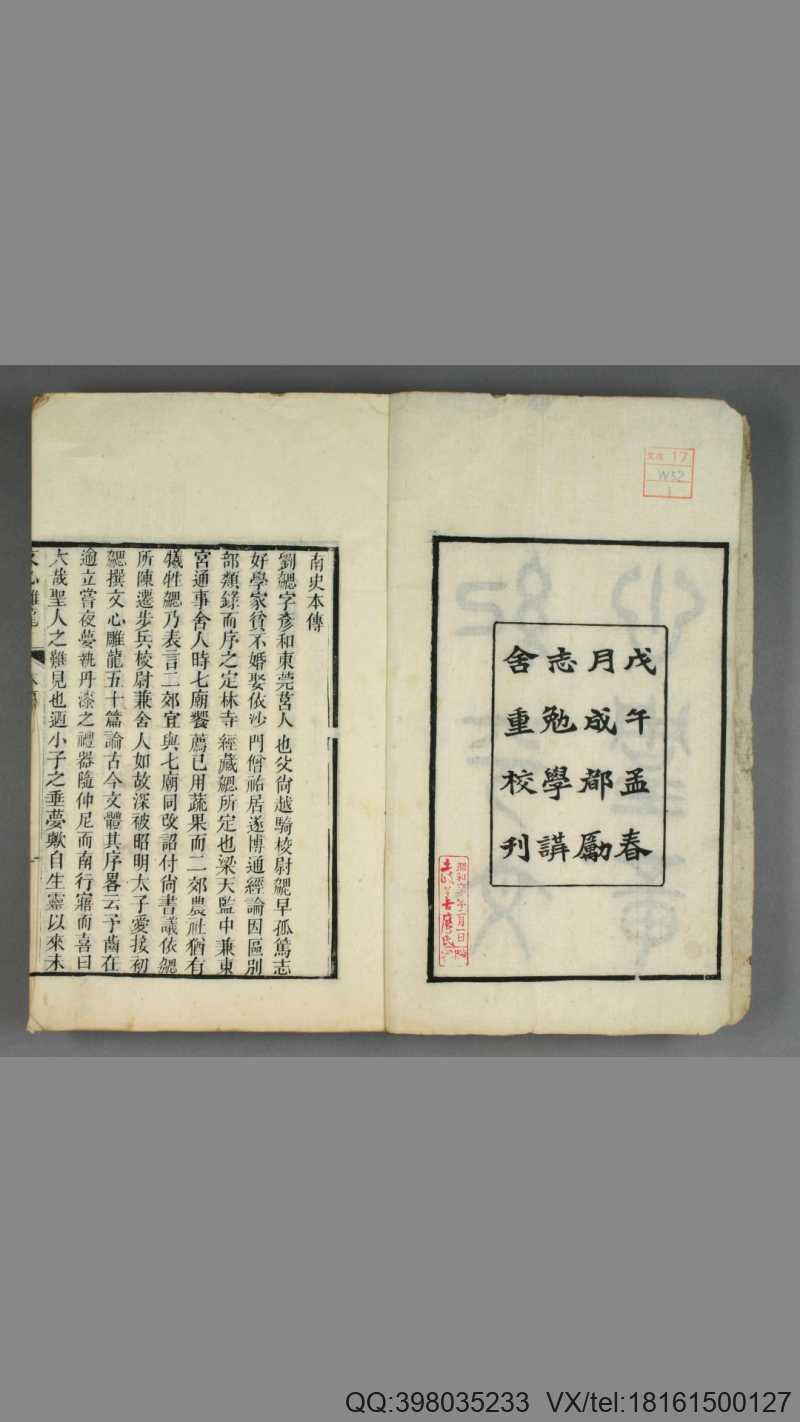 戊午孟春
月成都勵
志勉學講
舍重校刊
文哲 17
W52
1
南史本傳
劉勰字彥和東莞莒人也父尚越騎校尉勰早孤篤志
好學家貧不婚娶依沙門僧祐居遂博通經論因區別
部類錄而序之定林寺經藏勰所定也梁天監中兼東
宮通事舍人時七廟饗薦已用蔬果而二郊農社猶有
犧牲勰乃表言二郊宜與七廟同改詔付尚書議依勰
所陳遷步兵校尉兼舍人如故深被昭明太子愛接初
勰撰文心雕龍五十篇論古今文體其序畧云予齒在
逾立嘗夜夢執丹漆之禮器隨仲尼而南行寤而喜曰
大哉聖人之難見也迺小子之垂夢歟自生靈以來未
QQ:398035233 VX/tel:18161500127